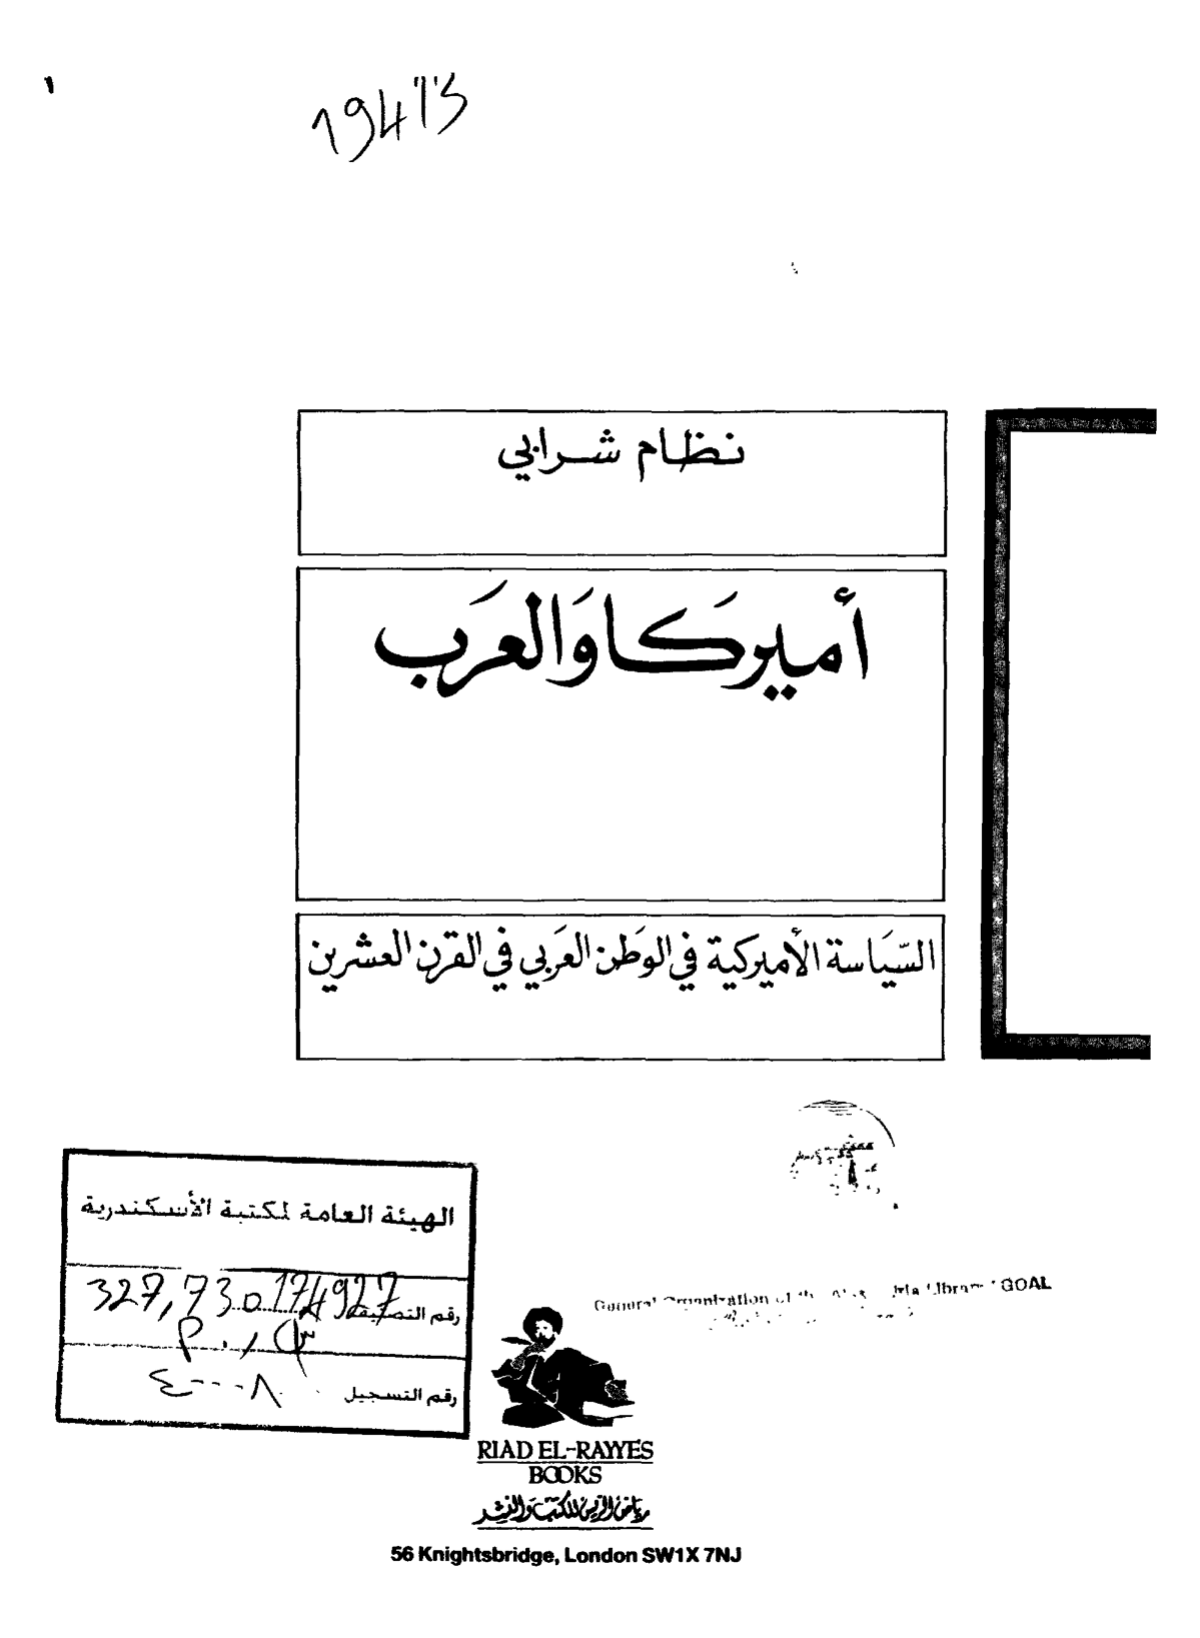 نظام شرابي
أميركا وَالعَرَب
السّيَاسة الأميركية في الوَطن العَربي في القرن العشرين
الهيئة العامة لمكتبة الأسكندرية
رقم التصنيف 327,73
رقم التسجيل
General Organization of the GOAL
RIAD EL-RAYYES
BOOKS
رياض الريس للكتب والنشر
56 Knightsbridge, London SW1X 7NJ